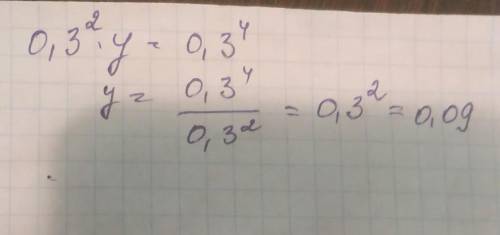 0,3² · y = 0,3⁴
y = 0,3⁴ / 0,3² = 0,3² = 0,09